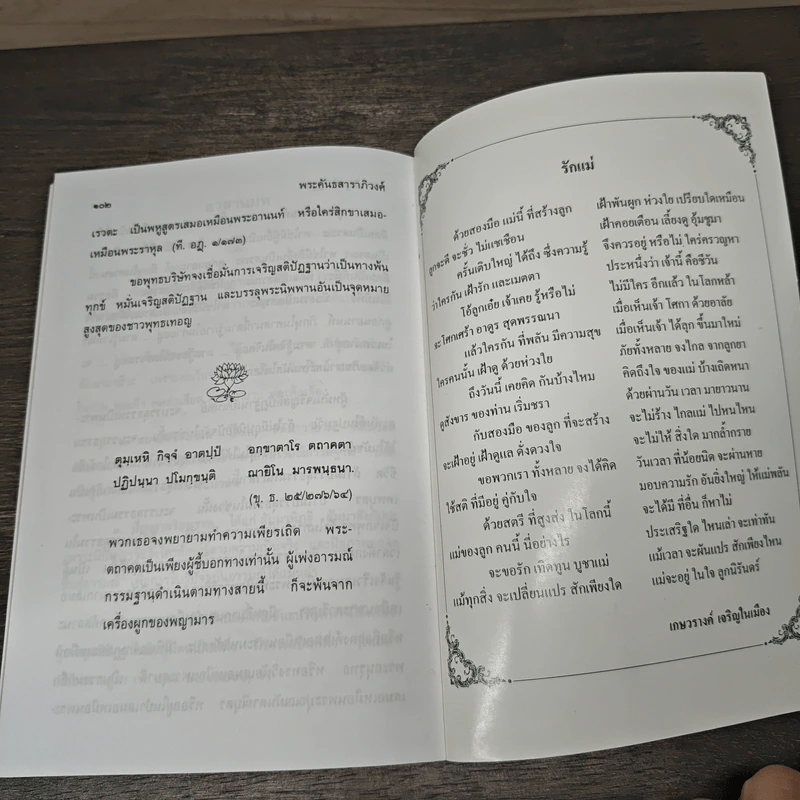 ๑๐๒
พระคันธสาราภิวงศ์
เรวตะ เป็นพหูสูตรเสมอเหมือนพระอานนท์ หรือใคร่สิกขาเสมอ-
เหมือนพระราหุล (ที. อฏฺ. ๑/๑๗๓)
ขอพุทธบริษัทจงเชื่อมั่นการเจริญสติปัฏฐานว่าเป็นทางพ้น
ทุกข์ หมั่นเจริญสติปัฏฐาน และบรรลุพระนิพพานอันเป็นจุดหมาย
สูงสุดของชาวพุทธเทอญ
ตุมฺเหหิ กิจฺจํ อาตปฺปํ อกฺขาตาโร ตถาคตา
ปฏิปนฺนา ปโมกฺขนฺติ ฌายิโน มารพนฺธนา.
(ขุ. ธ. ๒๕/๒๗๖/๖๔)
พวกเธอจงพยายามทำความเพียรเถิด พระ-
ตถาคตเป็นเพียงผู้ชี้บอกทางเท่านั้น ผู้เพ่งอารมณ์
กรรมฐานดำเนินตามทางสายนี้ ก็จะพ้นจาก
เครื่องผูกของพญามาร
รักแม่
ด้วยสองมือ แม่นี้ ที่สร้างลูก เฝ้าพันผูก ห่วงใย เปรียบใดเหมือน
ลูกจะดี จะชั่ว ไม่แชเชือน เฝ้าคอยเตือน เลี้ยงดู อุ้มชูมา
ครั้นเติบใหญ่ ได้ถึง ซึ่งความรู้ จึงควรอยู่ หรือไม่ ใคร่ครวญหา
ว่าใครกัน เฝ้ารัก และเมตตา ประหนึ่งว่า เจ้านี้ คือชีวัน
โอ้ลูกเอ๋ย เจ้าเคย รู้หรือไม่ ไม่มีใคร อีกแล้ว ในโลกหล้า
จะโศกเศร้า อาดูร สุดพรรณนา เมื่อเห็นเจ้า โศกา ด้วยอาลัย
แล้วใครกัน ที่พลัน มีความสุข เมื่อเห็นเจ้า ได้ลุก ขึ้นมาใหม่
ใครคนนั้น เฝ้าดู ด้วยห่วงใย ภัยทั้งหลาย จงไกล จากลูกยา
ถึงวันนี้ เคยคิด กันบ้างไหม คิดถึงใจ ของแม่ บ้างเถิดหนา
ดูสังขาร ของท่าน เริ่มชรา ด้วยผ่านวัน เวลา มายาวนาน
กับสองมือ ของลูก ที่จะสร้าง จะไม่ร้าง ไกลแม่ ไปหนไหน
จะเฝ้าอยู่ เฝ้าดูแล ดั่งดวงใจ จะไม่ให้ สิ่งใด มากล้ำกราย
ขอพวกเรา ทั้งหลาย จงได้คิด วันเวลา ที่น้อยนิด จะผ่านหาย
ใช้สติ ที่มีอยู่ คู่กับใจ มอบความรัก อันยิ่งใหญ่ ให้แม่พลัน
ด้วยสตรี ที่สูงส่ง ในโลกนี้ จะได้มี ที่อื่น ก็หาไม่
แม่ของลูก คนนี้ นี่อย่างไร ประเสริฐใด ไหนเล่า จะเท่าทัน
จะขอรัก เทิดทูน บูชาแม่ แม้เวลา จะผันแปร สักเพียงไหน
แม้ทุกสิ่ง จะเปลี่ยนแปร สักเพียงใด แม่จะอยู่ ในใจ ลูกนิรันดร์
เกษวรางค์ เจริญในเมือง